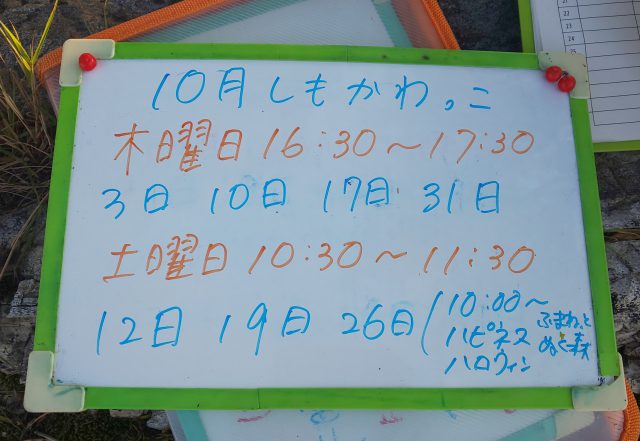 10月しもかわっこ
木曜日16:30〜17:30
3日 10日 17日 31日
土曜日10:30〜11:30
12日 19日 26日(10:00〜
ハピネス
ハロウィン
ふまねっと